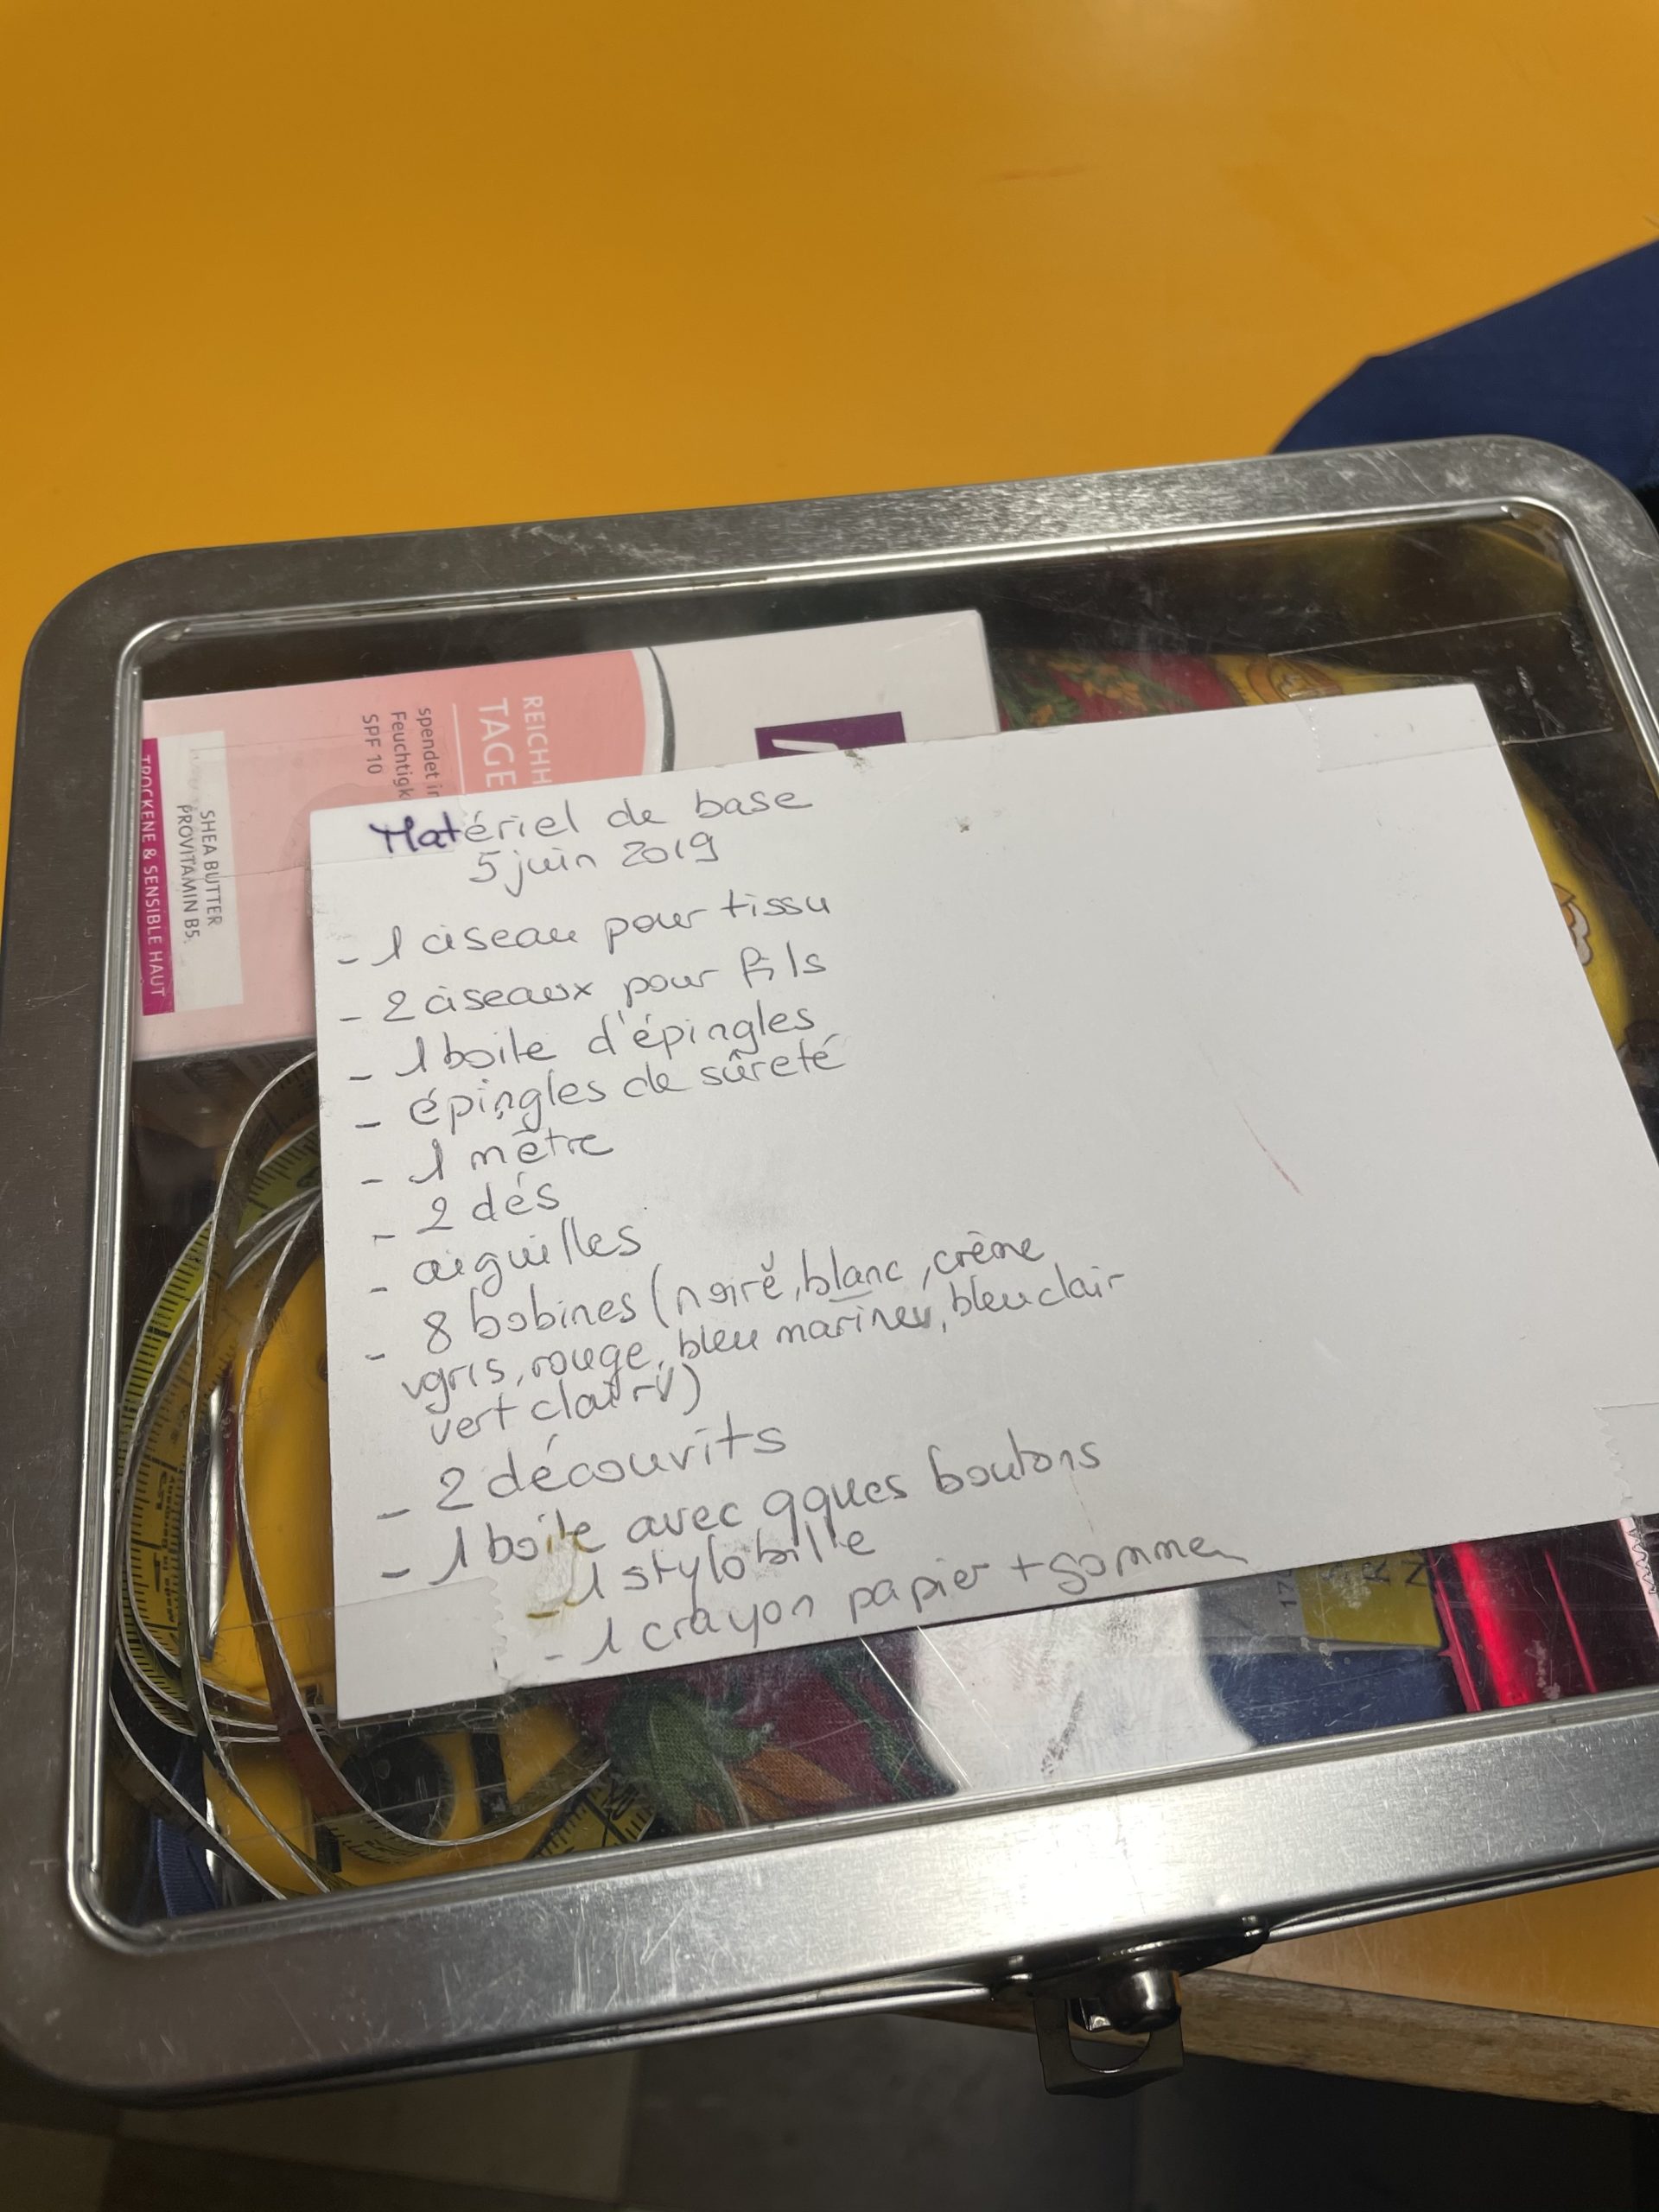 REICHH
TAGE
spendet in
Feuchtigk
SPF 10
SHEA BUTTER
PROVITAMIN B5.
TROCKENE & SENSIBLE HAUT
Matériel de base
5 juin 2019
- 1 ciseau pour tissu
- 2 ciseaux pour fils
- 1 boite d'épingles
- épingles de sûreté
- 1 mètre
- 2 dés
- aiguilles
- 8 bobines (noire, blanc, crème
gris, rouge, bleu marine, bleu clair
vert clair)
- 2 découvits
- 1 boite avec qques boutons
- 1 stylo bille
- 1 crayon papier + gomme